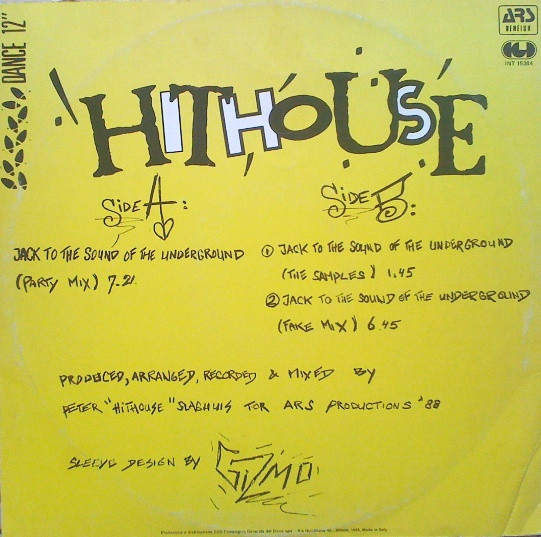 DANCE 12"
ARS
BENELUX
INT 15384
HITHOUSE
SIDE A:
JACK TO THE SOUND OF THE UNDERGROUND
(PARTY MIX) 7.21
SIDE B:
① JACK TO THE SOUND OF THE UNDERGROUND
(THE SAMPLES) 1.45
② JACK TO THE SOUND OF THE UNDERGROUND
(FAKE MIX) 6.45
PRODUCED, ARRANGED, RECORDED & MIXED BY
PETER "HITHOUSE" SLAGHUIS FOR ARS PRODUCTIONS '88
SLEEVE DESIGN BY GIZMO
Made in Italy